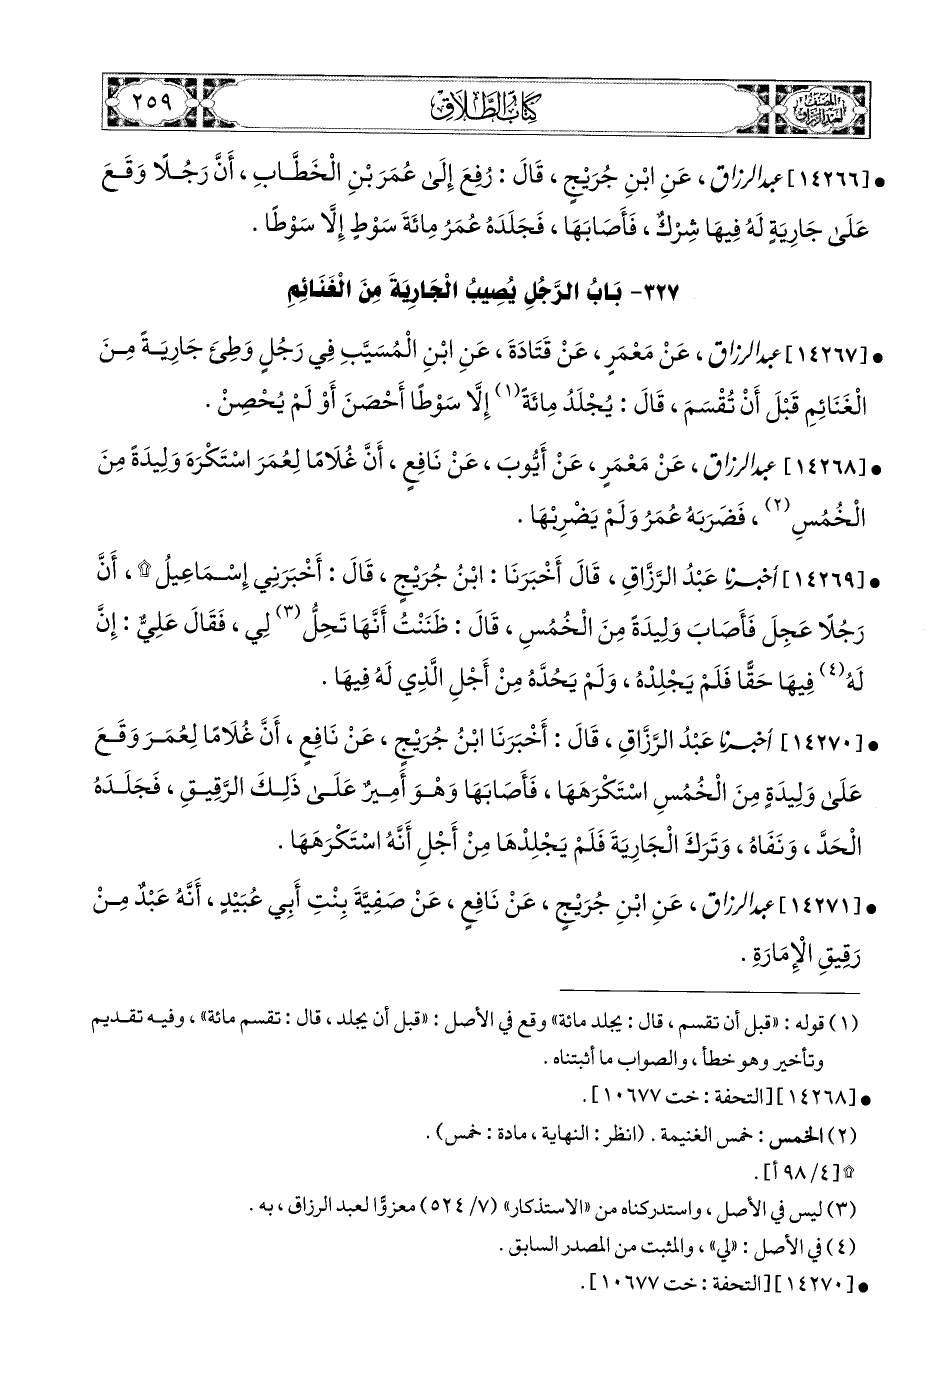 المصنف
لعبد الرزاق
كتاب الطلاق
٢٥٩
• [١٤٢٦٦] عبد الرزاق ، عَنِ ابْنِ جُرَيْجٍ ، قَالَ : رُفِعَ إِلَىٰ عُمَرَ بْنِ الْخَطَّابِ ، أَنَّ رَجُلًا وَقَعَ
عَلَىٰ جَارِيَةٍ لَهُ فِيهَا شِرْكٌ ، فَأَصَابَهَا ، فَجَلَدَهُ عُمَرُ مِائَةَ سَوْطٍ إِلَّا سَوْطًا .
٣٢٧- بَابُ الرَّجُلِ يُصِيبُ الْجَارِيَةَ مِنَ الْغَنَائِمِ
• [١٤٢٦٧] عبد الرزاق ، عَنْ مَعْمَرٍ ، عَنْ قَتَادَةَ ، عَنِ ابْنِ الْمُسَيَّبِ فِي رَجُلٍ وَطِئَ جَارِيَةً مِنَ
الْغَنَائِمِ قَبْلَ أَنْ تُقْسَمَ ، قَالَ : يُجْلَدُ مِائَةً (١) إِلَّا سَوْطًا أَحْصَنَ أَوْ لَمْ يُحْصِنْ .
• [١٤٢٦٨] عبد الرزاق ، عَنْ مَعْمَرٍ ، عَنْ أَيُّوبَ ، عَنْ نَافِعٍ ، أَنَّ غُلَامًا لِعُمَرَ اسْتَكْرَهَ وَلِيدَةً مِنَ
الْخُمُسِ (٢) ، فَضَرَبَهُ عُمَرُ وَلَمْ يَضْرِبْهَا .
• [١٤٢٦٩] أخبرنا عَبْدُ الرَّزَّاقِ ، قَالَ أَخْبَرَنَا : ابْنُ جُرَيْجٍ ، قَالَ : أَخْبَرَنِي إِسْمَاعِيلُ ۩ ، أَنَّ
رَجُلًا عَجِلَ فَأَصَابَ وَلِيدَةً مِنَ الْخُمُسِ ، قَالَ : ظَنَنْتُ أَنَّهَا تَحِلُّ (٣) لِي ، فَقَالَ عَلِيٌّ : إِنَّ
لَهُ (٤) فِيهَا حَقًّا فَلَمْ يَجْلِدْهُ ، وَلَمْ يَحُدَّهُ مِنْ أَجْلِ الَّذِي لَهُ فِيهَا .
• [١٤٢٧٠] أخبرنا عَبْدُ الرَّزَّاقِ ، قَالَ : أَخْبَرَنَا ابْنُ جُرَيْجٍ ، عَنْ نَافِعٍ ، أَنَّ غُلَامًا لِعُمَرَ وَقَعَ
عَلَىٰ وَلِيدَةٍ مِنَ الْخُمُسِ اسْتَكْرَهَهَا ، فَأَصَابَهَا وَهُوَ أَمِيرٌ عَلَىٰ ذَلِكَ الرَّقِيقِ ، فَجَلَدَهُ
الْحَدَّ ، وَنَفَاهُ ، وَتَرَكَ الْجَارِيَةَ فَلَمْ يَجْلِدْهَا مِنْ أَجْلِ أَنَّهُ اسْتَكْرَهَهَا .
• [١٤٢٧١] عبد الرزاق ، عَنِ ابْنِ جُرَيْجٍ ، عَنْ نَافِعٍ ، عَنْ صَفِيَّةَ بِنْتِ أَبِي عُبَيْدٍ ، أَنَّهُ عَبْدٌ مِنْ
رَقِيقِ الْإِمَارَةِ .
(١) قوله : «قبل أن تقسم ، قال : يجلد مائة» وقع في الأصل : «قبل أن يجلد ، قال : تقسم مائة» ، وفيه تقديم
وتأخير وهو خطأ ، والصواب ما أثبتناه .
• [١٤٢٦٨] [التحفة : خت ١٠٦٧٧] .
(٢) الخمس : خمس الغنيمة . (انظر : النهاية ، مادة : خمس) .
۩ [٤/ ٩٨ أ] .
(٣) ليس في الأصل ، واستدركناه من «الاستذكار» (٧/ ٥٢٤) معزوًّا لعبد الرزاق ، به .
(٤) في الأصل : «لي» ، والمثبت من المصدر السابق .
• [١٤٢٧٠] [التحفة : خت ١٠٦٧٧] .